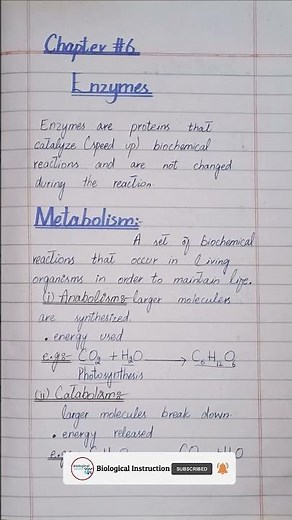 Chapter #6
Enzymes
Enzymes are proteins that
catalyze (speed up) biochemical
reactions and are not changed
during the reaction.
Metabolism:-
A set of biochemical
reactions that occur in living
organisms in order to maintain life.
(i) Anabolism:- larger molecules
are synthesized.
• energy used
e.g:- CO₂ + H₂O → C₆H₁₂O₆
Photosynthesis
(ii) Catabolism:-
larger molecules break down.
• energy released
e.g:-
Biological Instruction SUBSCRIBED